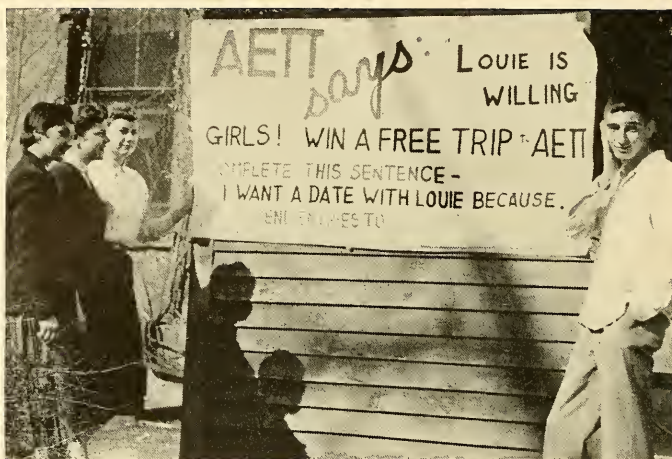 AEΠ
says: LOUIE IS
WILLING
GIRLS! WIN A FREE TRIP TO AEΠ
COMPLETE THIS SENTENCE-
I WANT A DATE WITH LOUIE BECAUSE.
TO